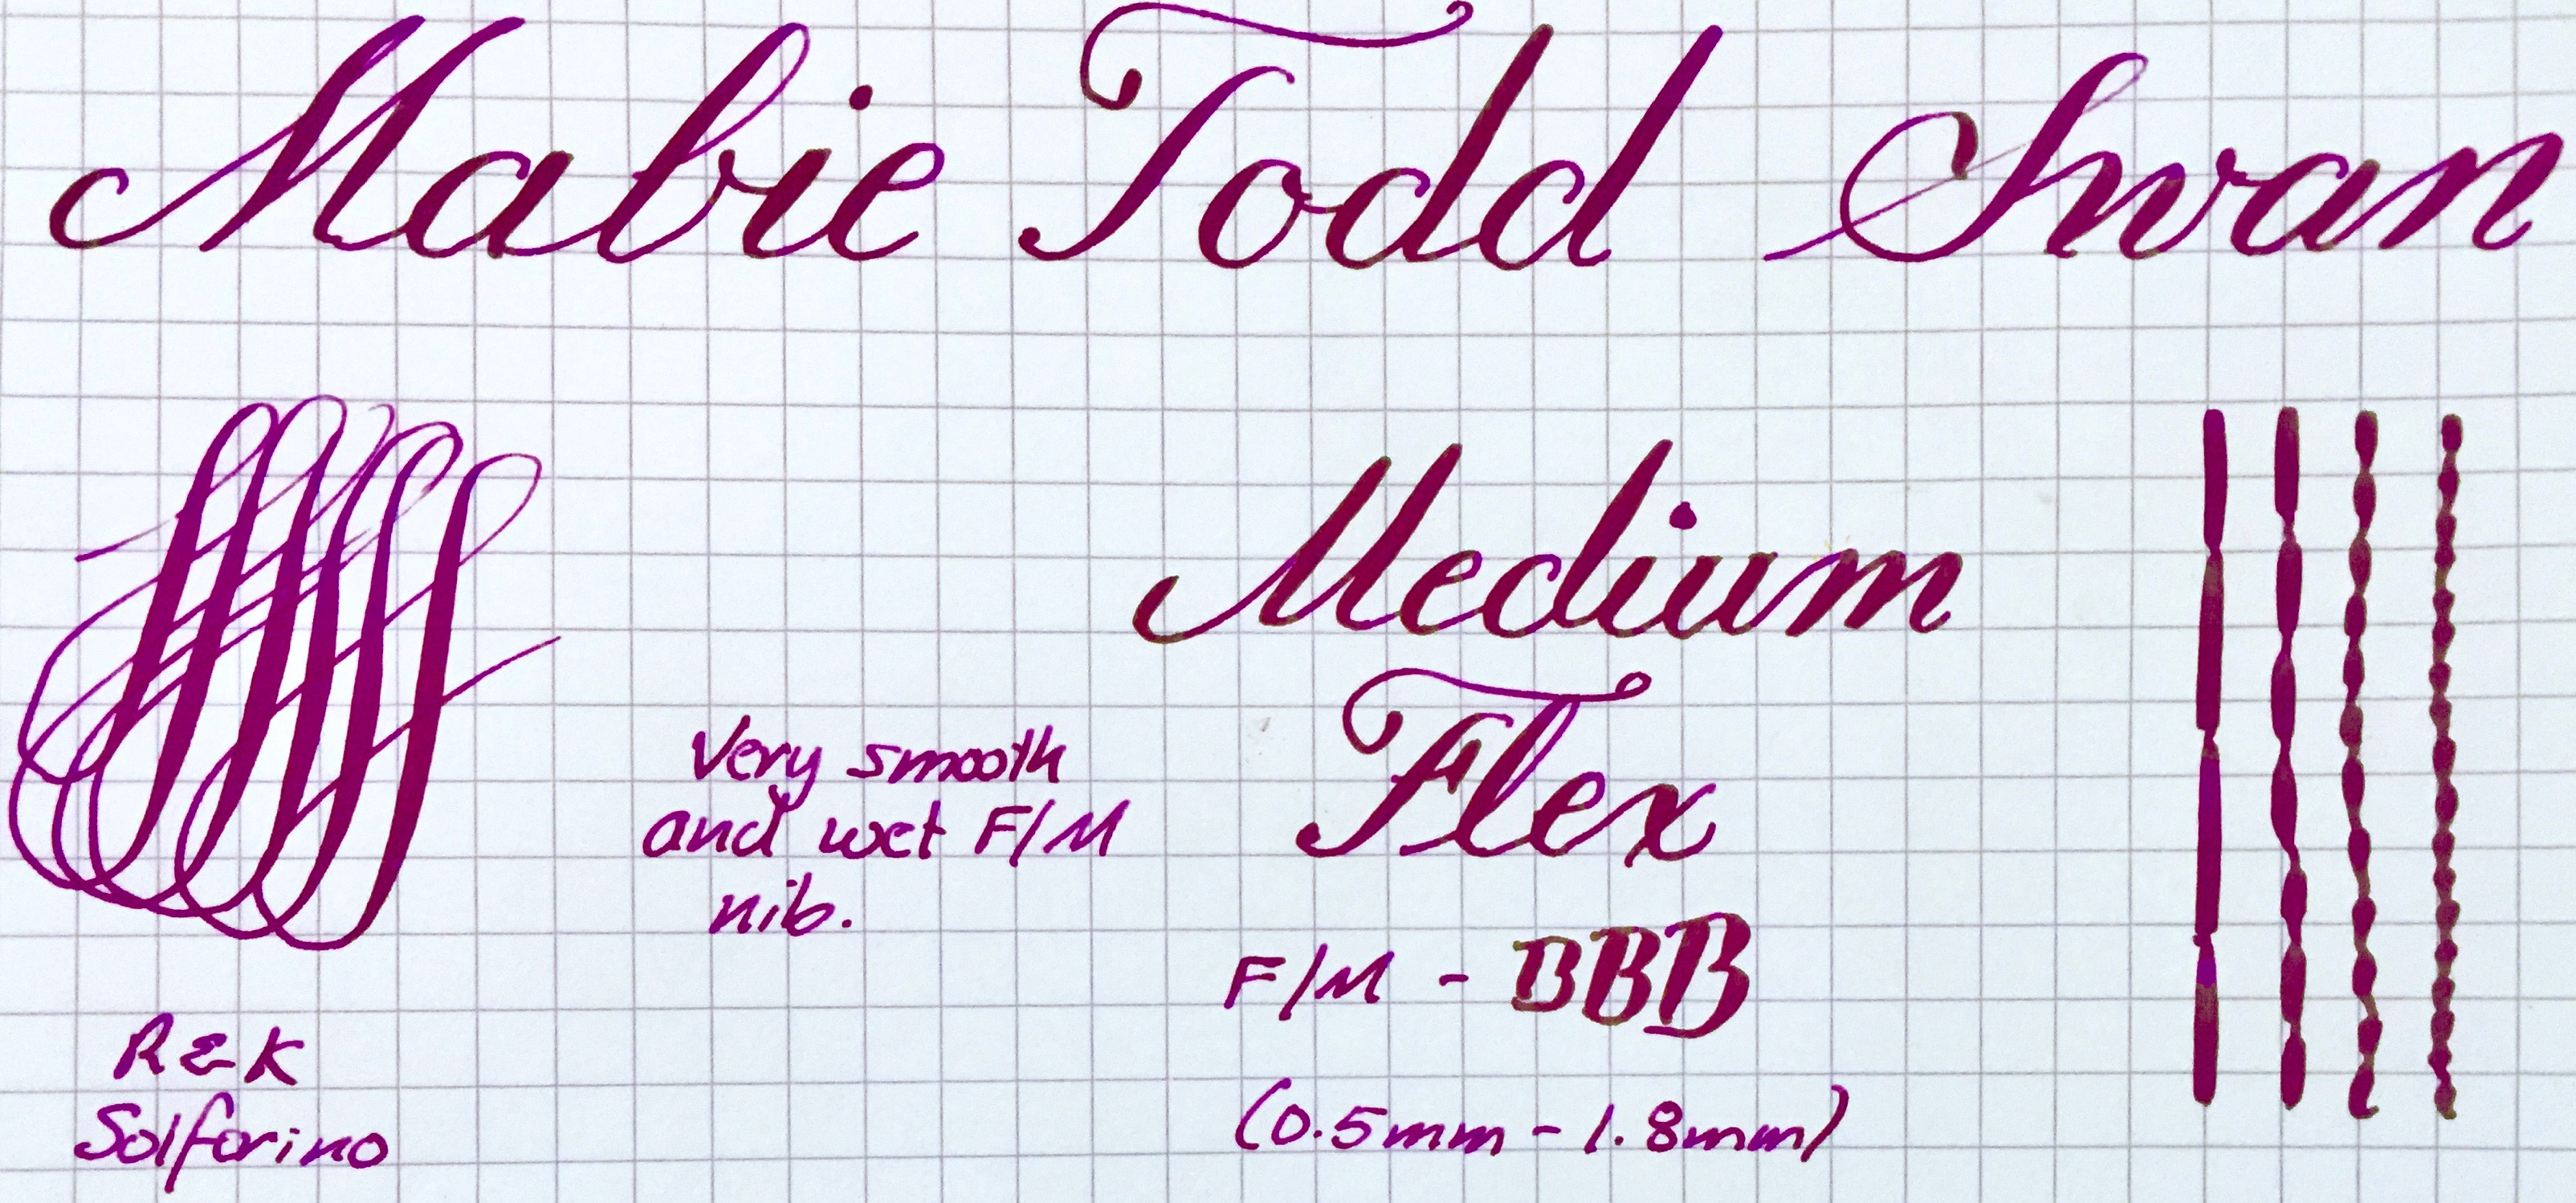 Mabie Todd Swan
Medium
Flex
Very smooth
and wet F/M
nib.
F/M - BBB
(0.5mm - 1.8mm)
R&K
Solferino